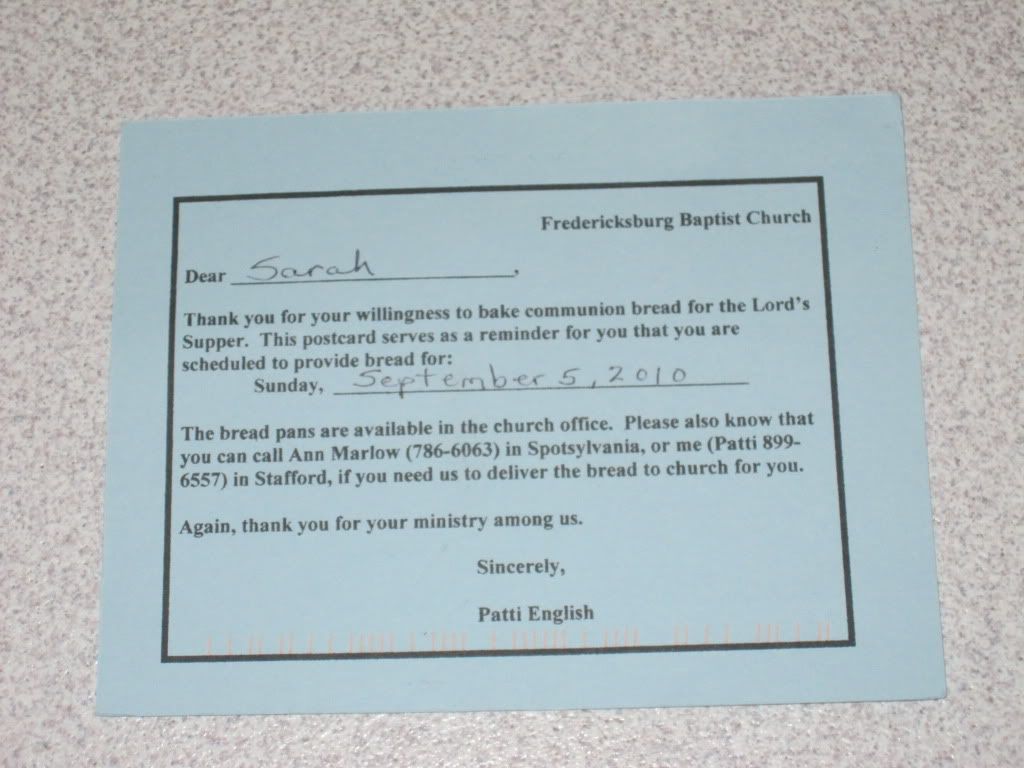 Fredericksburg Baptist Church
Dear Sarah,
Thank you for your willingness to bake communion bread for the Lord's
Supper. This postcard serves as a reminder for you that you are
scheduled to provide bread for:
Sunday, September 5, 2010
The bread pans are available in the church office. Please also know that
you can call Ann Marlow (786-6063) in Spotsylvania, or me (Patti 899-
6557) in Stafford, if you need us to deliver the bread to church for you.
Again, thank you for your ministry among us.
Sincerely,
Patti English